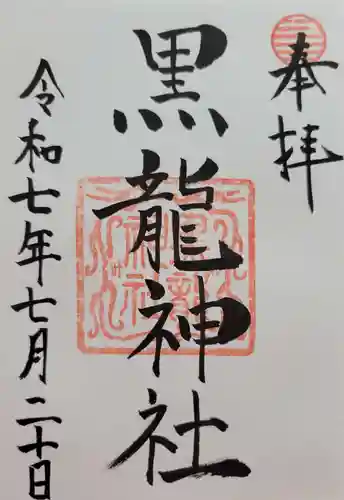 奉拝
黒龍神社
令和七年七月二十日